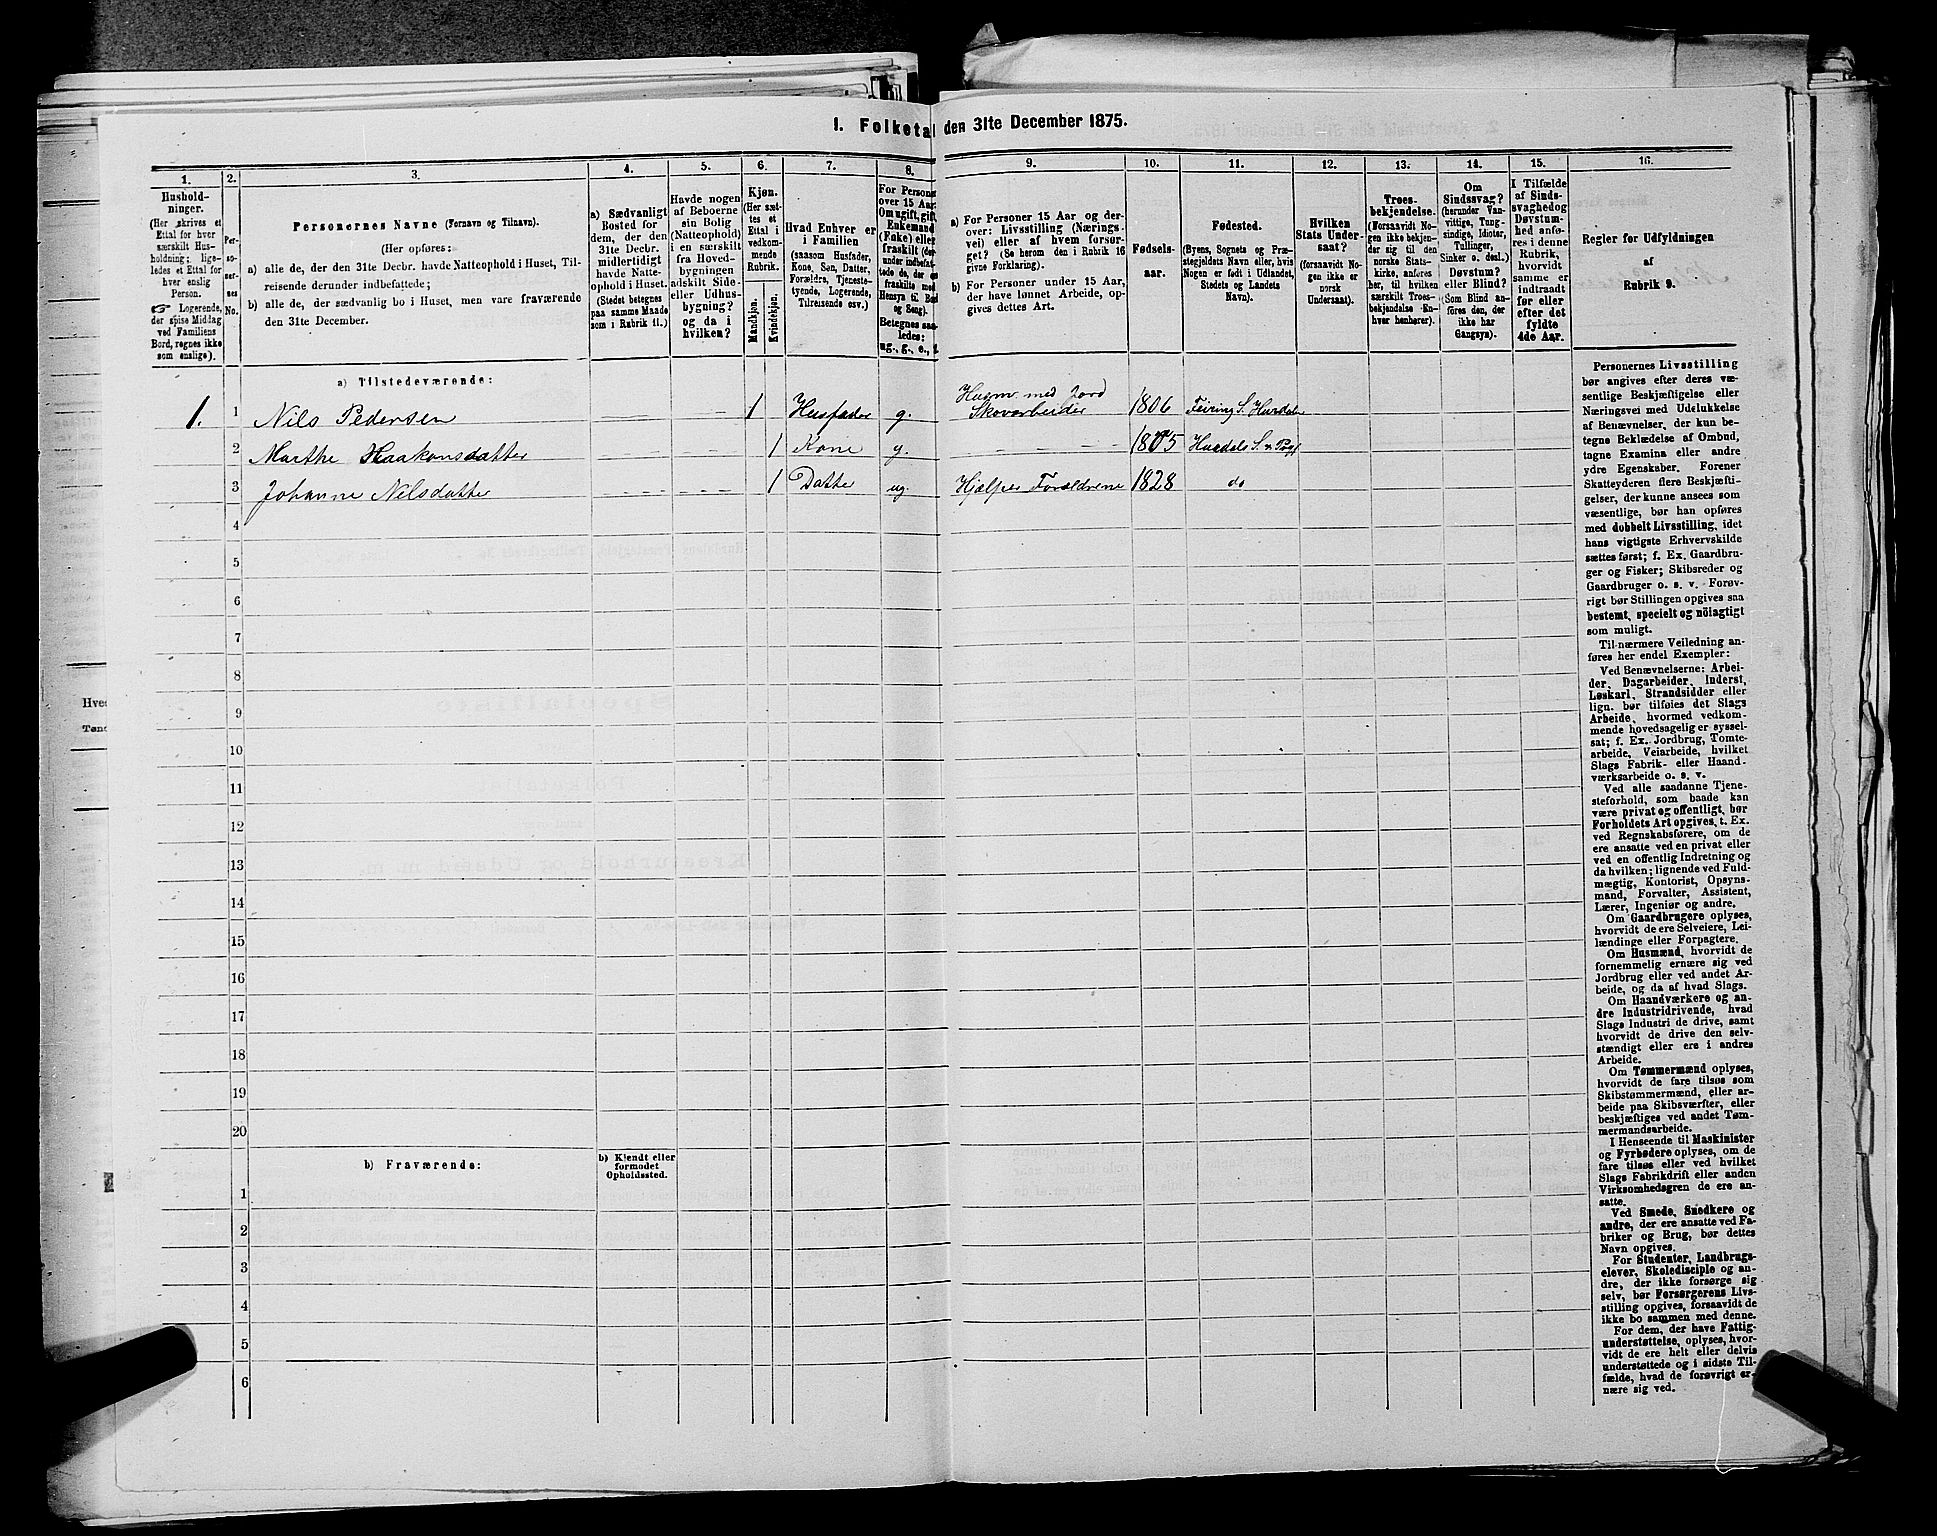 1. Folketal den 31te December 1875.
1.
Hushold-
ninger.
(Her skrives et
Ettal for hver
særskilt Hus-
holdning; lige-
ledes et Ettal for
hver enslig
Person.
☞ Logerende,
der spise Middag
ved Familiens
Bord, regnes ikke
som enslige).
2.
Per-
so-
ner-
nes
No.
3.
Personernes Navne (Fornavn og Tilnavn).
(Her opføres:
a) alle de, der den 31te Decbr. havde Natteophold i Huset, Til-
reisende derunder indbefattede;
b) alle de, der sædvanlig bo i Huset, men vare fraværende
den 31te December.
4.
a) Sædvanligt
Bosted for
dem, der den
31te Decbr.
midlertidigt
havde Natte-
ophold i Huset.
(Stedet betegnes
paa samme Maade
som i Rubrik 11.)
5.
Havde nogen
af Beboerne
sin Bolig
(Natteophold)
i en særskilt
fra Hoved-
bygningen
adskilt Side-
eller Udhus-
bygning?
og da i
hvilken?
6.
Kjøn.
(Her sæt-
tes et
Ettal i
vedkom-
mende
Rubrik.
Mandkjøn.
Kvindekjøn.
7.
Hvad Enhver er
i Familien
(saasom Husfader,
Kone, Søn, Datter,
Forældre, Tjeneste-
tyende, Logerende,
Tilreisende osv.)
8.
For Personer
over 15 Aar:
Om ugift, gift,
Enkemand
(Enke) eller
fraskilt (der-
under indbefat-
tede de, der ere
fraskilte med
Hensyn til Bord
og Seng).
Betegnes saa-
ledes:
ug., g., e., f.
9.
a) For Personer 15 Aar og der-
over: Livsstilling (Nærings-
vei) eller af hvem forsør-
get? (Se herom den i Rubrik 16
givne Forklaring).
b) For Personer under 15 Aar,
der have lønnet Arbeide, op-
gives dettes Art.
10.
Fødsels-
aar.
11.
Fødested.
(Byens, Sognets og Præ-
stegjeldets Navn eller, hvis
Nogen er født i Udlandet,
Stedets og Landets
Navn).
12.
Hvilken
Stats Under-
saat?
(forsaavidt No-
gen ikke er
norsk
Undersaat).
13.
Troes-
bekjendelse.
(Forsaavidt No-
gen ikke bekjen-
der sig til den
norske Stats-
kirke, anføres
her, til hvilken
særskilt Troes-
bekjendelse En-
hver henhører).
14.
Om
Sindssvag?
(herunder Van-
vittige, Tung-
sindige, Idioter,
Tullinger,
Sinker o. desl.)
Døvstum?
eller Blind?
(Som Blind an-
føres den, der
ikke har
Gangsyn).
15.
I Tilfælde
af Sinds-
svaghed og
Døvstum-
hed anfø-
res i denne
Rubrik,
hvorvidt
samme er
indtraadt
før eller
efter det
fyldte
4de Aar.
16.
Regler for Udfyldningen
af
Rubrik 9.
a) Tilstedeværende:
1. 1 Nils Pedersen 1 Husfader g. Husm. med Jord Skovarbeider 1806 Feiring S. Hurdalen
2 Marthe Haakonsdatter 1 Kone g. 1805 Hurdals S. & Pgj
3 Johanne Nilsdatter 1 Datte ug. Hjælper Forældrene 1828 do
4
5
6
7
8
9
10
11
12
13
14
15
16
17
18
19
20
b) Fraværende:
b) Kjendt eller
formodet
Opholdssted.
1
2
3
4
5
6
Personernes Livsstilling
bør angives efter deres væ-
sentlige Beskjæftigelse eller
Næringsvei med Udelukkelse
af Benævnelser, der kun be-
tegne Beklædelse af Ombud,
tagne Examina eller andre
ydre Egenskaber. Forener
Skatteyderen flere Beskjæfti-
gelser, der kunne ansees som
væsentlige, bør han opføres
med dobbelt Livsstilling, idet
hans vigtigste Erhvervskilde
sættes først; f. Ex. Gaardbru-
ger og Fisker; Skibsreder og
Gaardbruger o. s. v. Forøv-
rigt bør Stillingen opgives saa
bestemt, specielt og nöiagtigt
som muligt.
Til nærmere Veiledning an-
føres her endel Exempler:
Ved Benævnelserne: Arbei-
der, Dagarbeider, Inderst,
Løskarl, Strandsidder eller
lign. bør tilføies det Slags
Arbeide, hvormed vedkom-
mende hovedsagelig er syssel-
sat; f. Ex. Jordbrug, Tomte-
arbeide, Veiarbeide, hvilket
Slags Fabrik- eller Haand-
værksarbeide o. s. v.
Ved alle saadanne Tjene-
steforhold, som baade kan
være privat og offentligt, bør
Forholdets Art opgives, t. Ex.
ved Regnskabsførere, om de
ere ansatte ved en privat eller
ved en offentlig Indretning og
da hvilken; lignende ved Fuld-
mægtig, Kontorist, Opsyns-
mand, Forvalter, Assistent,
Lærer, Ingeniør og andre.
Om Gaardbrugere oplyses,
hvorvidt de ere Selveiere, Lei-
lændinge eller Forpagtere.
Om Husmænd, hvorvidt de
fornemmelig ernære sig ved
Jordbrug eller ved andet Ar-
beide, og da af hvad Slags.
Om Haandværkere og an-
dre Industridrivende, hvad
Slags Industri de drive, samt
hvorvidt de drive den selv-
stændigt eller ere i andres
Arbeide.
Om Tømmermænd oplyses,
hvorvidt de fare tilsøs som
Skibstømmermænd, eller ar-
beide paa Skibsværfter, eller
beskjæftiges ved andet Tøm-
mermandsarbeide.
I Henseende til Maskinister
og Fyrbødere oplyses, om de
fare tilsøs eller ved hvilket
Slags Fabrikdrift eller anden
Virksomhedsgren de ere an-
satte.
Ved Smede, Snedkere og
andre, der ere ansatte ved Fa-
briker og Brug, bør dettes
Navn opgives.
For Studenter, Landbrugs-
elever, Skoledisciple og an-
dre, der ikke forsørge sig
selv, bør Forsørgerens Livs-
stilling opgives, forsaavidt de
ikke bo sammen med denne.
For dem, der have Fattig-
understøttelse, oplyses, hvor-
vidt de ere helt eller delvis
understøttede og i sidste Til-
fælde, hvad de forøvrigt er-
nære sig ved.